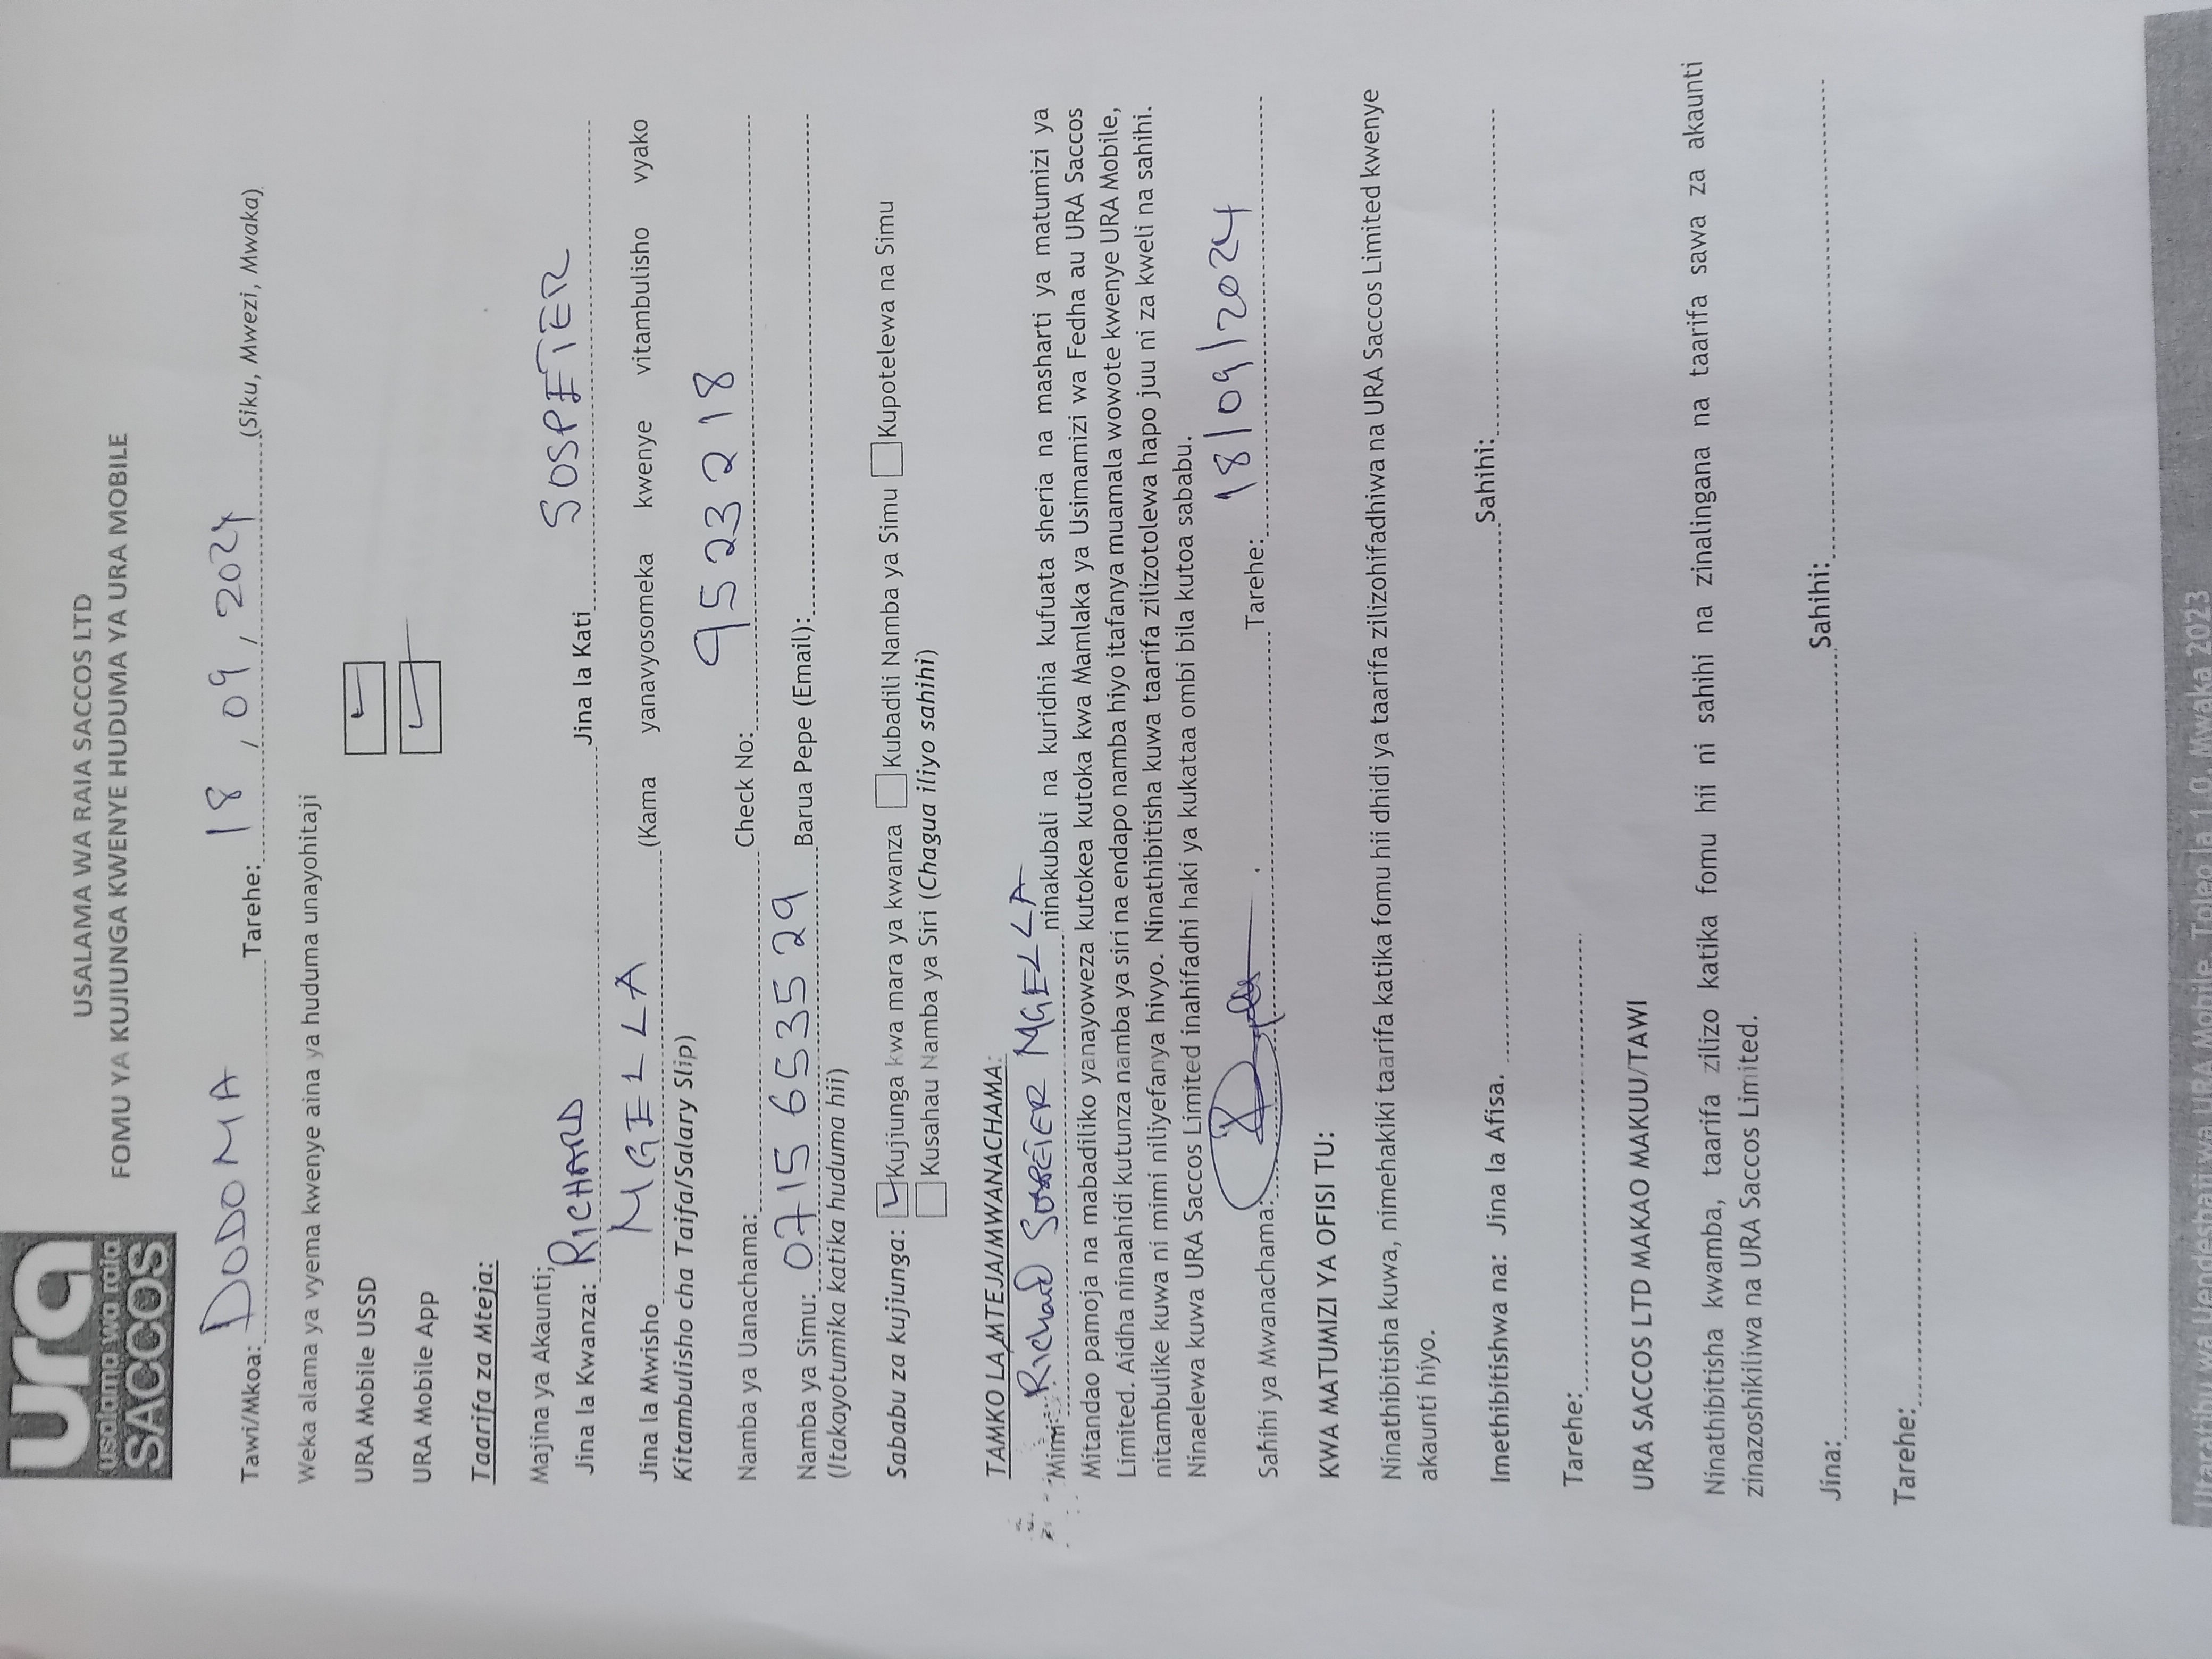 ura
usalama wa raia
SACCOS
USALAMA WA RAIA SACCOS LTD
FOMU YA KUJIUNGA KWENYE HUDUMA YA URA MOBILE
Tawi/Mkoa: DODOMA Tarehe: 18 / 09 / 2024 (Siku, Mwezi, Mwaka)
Weka alama ya vyema kwenye aina ya huduma unayohitaji
URA Mobile USSD
URA Mobile App
Taarifa za Mteja:
Majina ya Akaunti;
Jina la Kwanza: RICHARD Jina la Kati SOSPETER
Jina la Mwisho MGELLA (Kama yanavyosomeka kwenye vitambulisho vyako
Kitambulisho cha Taifa/Salary Slip)
Namba ya Uanachama: Check No: 9523218
Namba ya Simu: 0715 653529 Barua Pepe (Email):
(Itakayotumika katika huduma hii)
Sababu za kujiunga: Kujiunga kwa mara ya kwanza Kubadili Namba ya Simu Kupotelewa na Simu
Kusahau Namba ya Siri (Chagua iliyo sahihi)
TAMKO LA MTEJA/MWANACHAMA:
Mimi Richard SOSPETER MGELLA ninakubali na kuridhia kufuata sheria na masharti ya matumizi ya
Mitandao pamoja na mabadiliko yanayoweza kutokea kutoka kwa Mamlaka ya Usimamizi wa Fedha au URA Saccos
Limited. Aidha ninaahidi kutunza namba ya siri na endapo namba hiyo itafanya muamala wowote kwenye URA Mobile,
nitambulike kuwa ni mimi niliyefanya hivyo. Ninathibitisha kuwa taarifa zilizotolewa hapo juu ni za kweli na sahihi.
Ninaelewa kuwa URA Saccos Limited inahifadhi haki ya kukataa ombi bila kutoa sababu.
Sahihi ya Mwanachama: Tarehe: 18/09/2024
KWA MATUMIZI YA OFISI TU:
Ninathibitisha kuwa, nimehakiki taarifa katika fomu hii dhidi ya taarifa zilizohifadhiwa na URA Saccos Limited kwenye
akaunti hiyo.
Imethibitishwa na: Jina la Afisa. Sahihi:
Tarehe:
URA SACCOS LTD MAKAO MAKUU/TAWI
Ninathibitisha kwamba, taarifa zilizo katika fomu hii ni sahihi na zinalingana na taarifa sawa za akaunti
zinazoshikiliwa na URA Saccos Limited.
Jina: Sahihi:
Tarehe:
Utaratibu wa Uendeshaji wa URA Mobile, Toleo la 1.0, Mwaka 2023